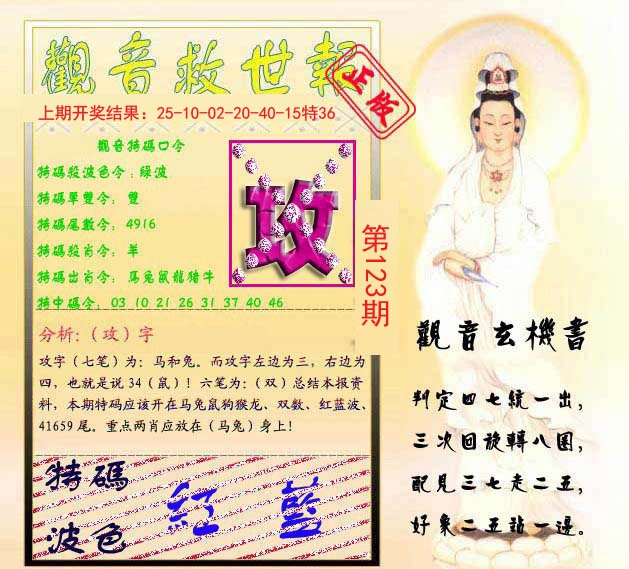 觀音救世報
正版
上期开奖结果：25-10-02-20-40-15特36
觀音特碼口令
特碼殺波色令：綠波
特碼單雙令：雙
特碼尾數令：4916
特碼殺肖令：羊
特碼出肖令：馬兔鼠龍猪牛
特中碼令：03 10 21 26 31 37 40 46
攻
第123期
分析：（攻）字
攻字（七笔）为：马和兔。而攻字左边为三，右边为
四，也就是说34（鼠）！六笔为：（双）总结本报资
料，本期特码应该开在马兔鼠狗猴龙、双数、红蓝波、
41659尾。重点两肖应放在（马兔）身上！
特碼
波色
紅藍
觀音玄機書
判定四七統一出，
三次回旋轉八圈，
配見三七走二五，
好象二五站一邊。